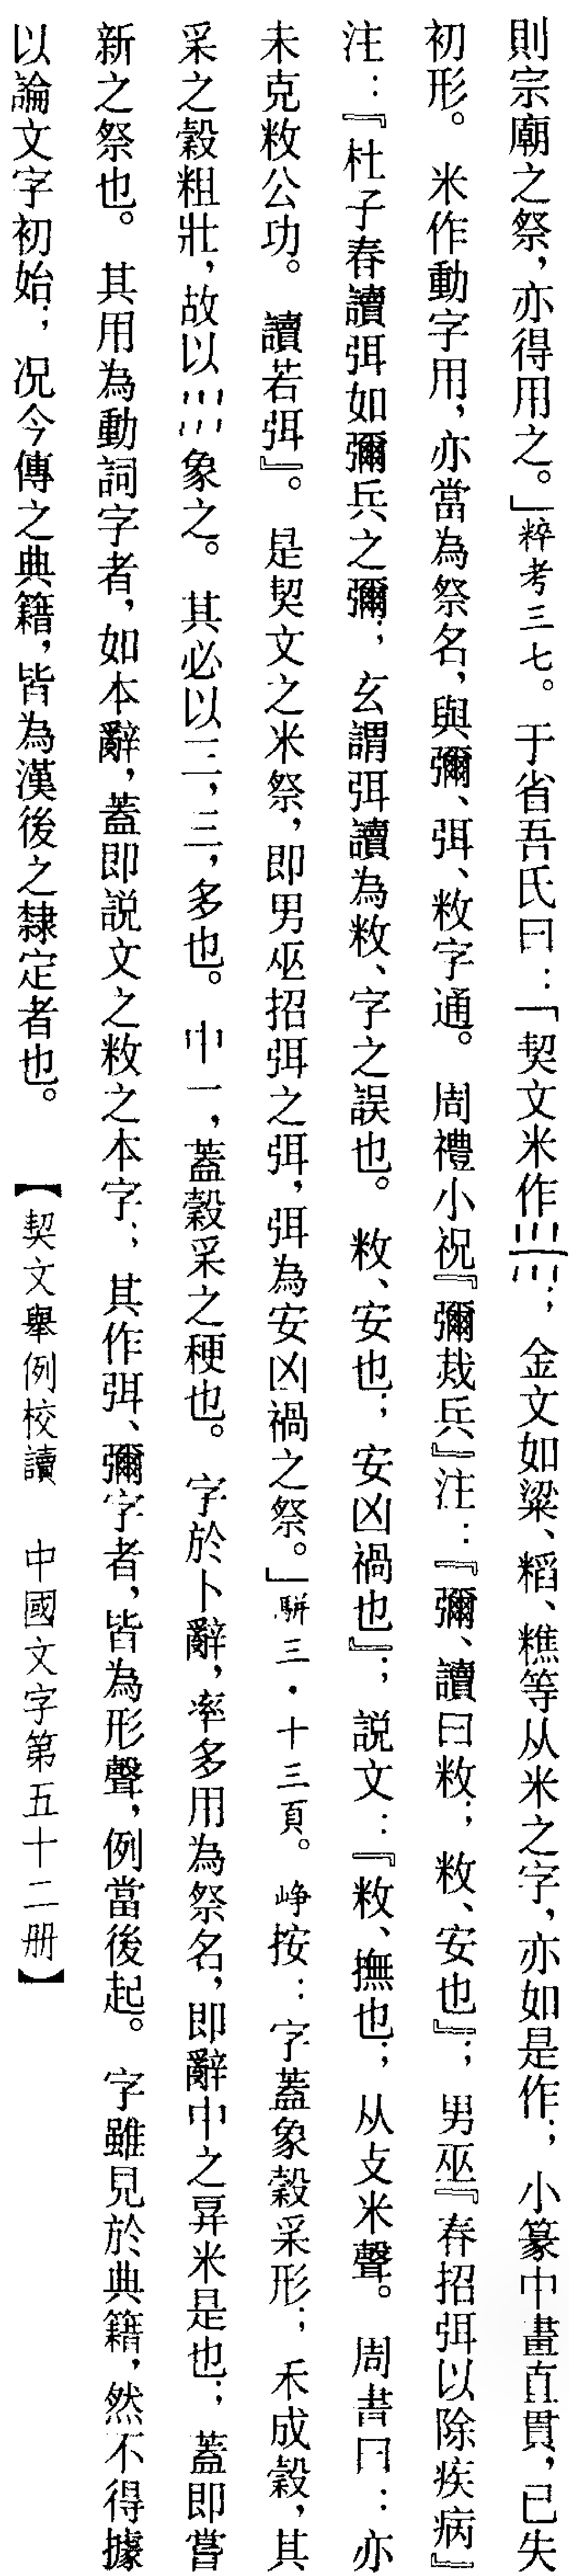 則宗廟之祭，亦得用之。」粹考三七。于省吾氏曰：「契文米作；金文如粱、稻、糕等从米之字，亦如是作；小篆中畫直貫，已失
初形。米作動字用，亦當為祭名，與彌、弭、敉字通。周禮小祝『彌烖兵』注：『彌、讀曰敉；敉、安也』；男巫『春招弭以除疾病』
注：『杜子春讀弭如彌兵之彌；玄謂弭讀為敉、字之誤也。敉、安也；安凶禍也』；説文：『敉、撫也；从攴米聲。周書曰：亦
未克敉公功。讀若弭』。是契文之米祭，即男巫招弭之弭，弭為安凶禍之祭。」駢三．十三頁。崝按：字蓋象穀采形；禾成穀，其
采之穀粗壯，故以象之。其必以三，三，多也。中一，蓋穀采之稉也。字於卜辭，率多用為祭名，即辭中之羿米是也；蓋即嘗
新之祭也。其用為動詞字者，如本辭，蓋即説文之敉之本字；其作弭、彌字者，皆為形聲，例當後起。字雖見於典籍，然不得據
以論文字初始；况今傳之典籍，皆為漢後之隸定者也。【契文舉例校讀　中國文字第五十二册】